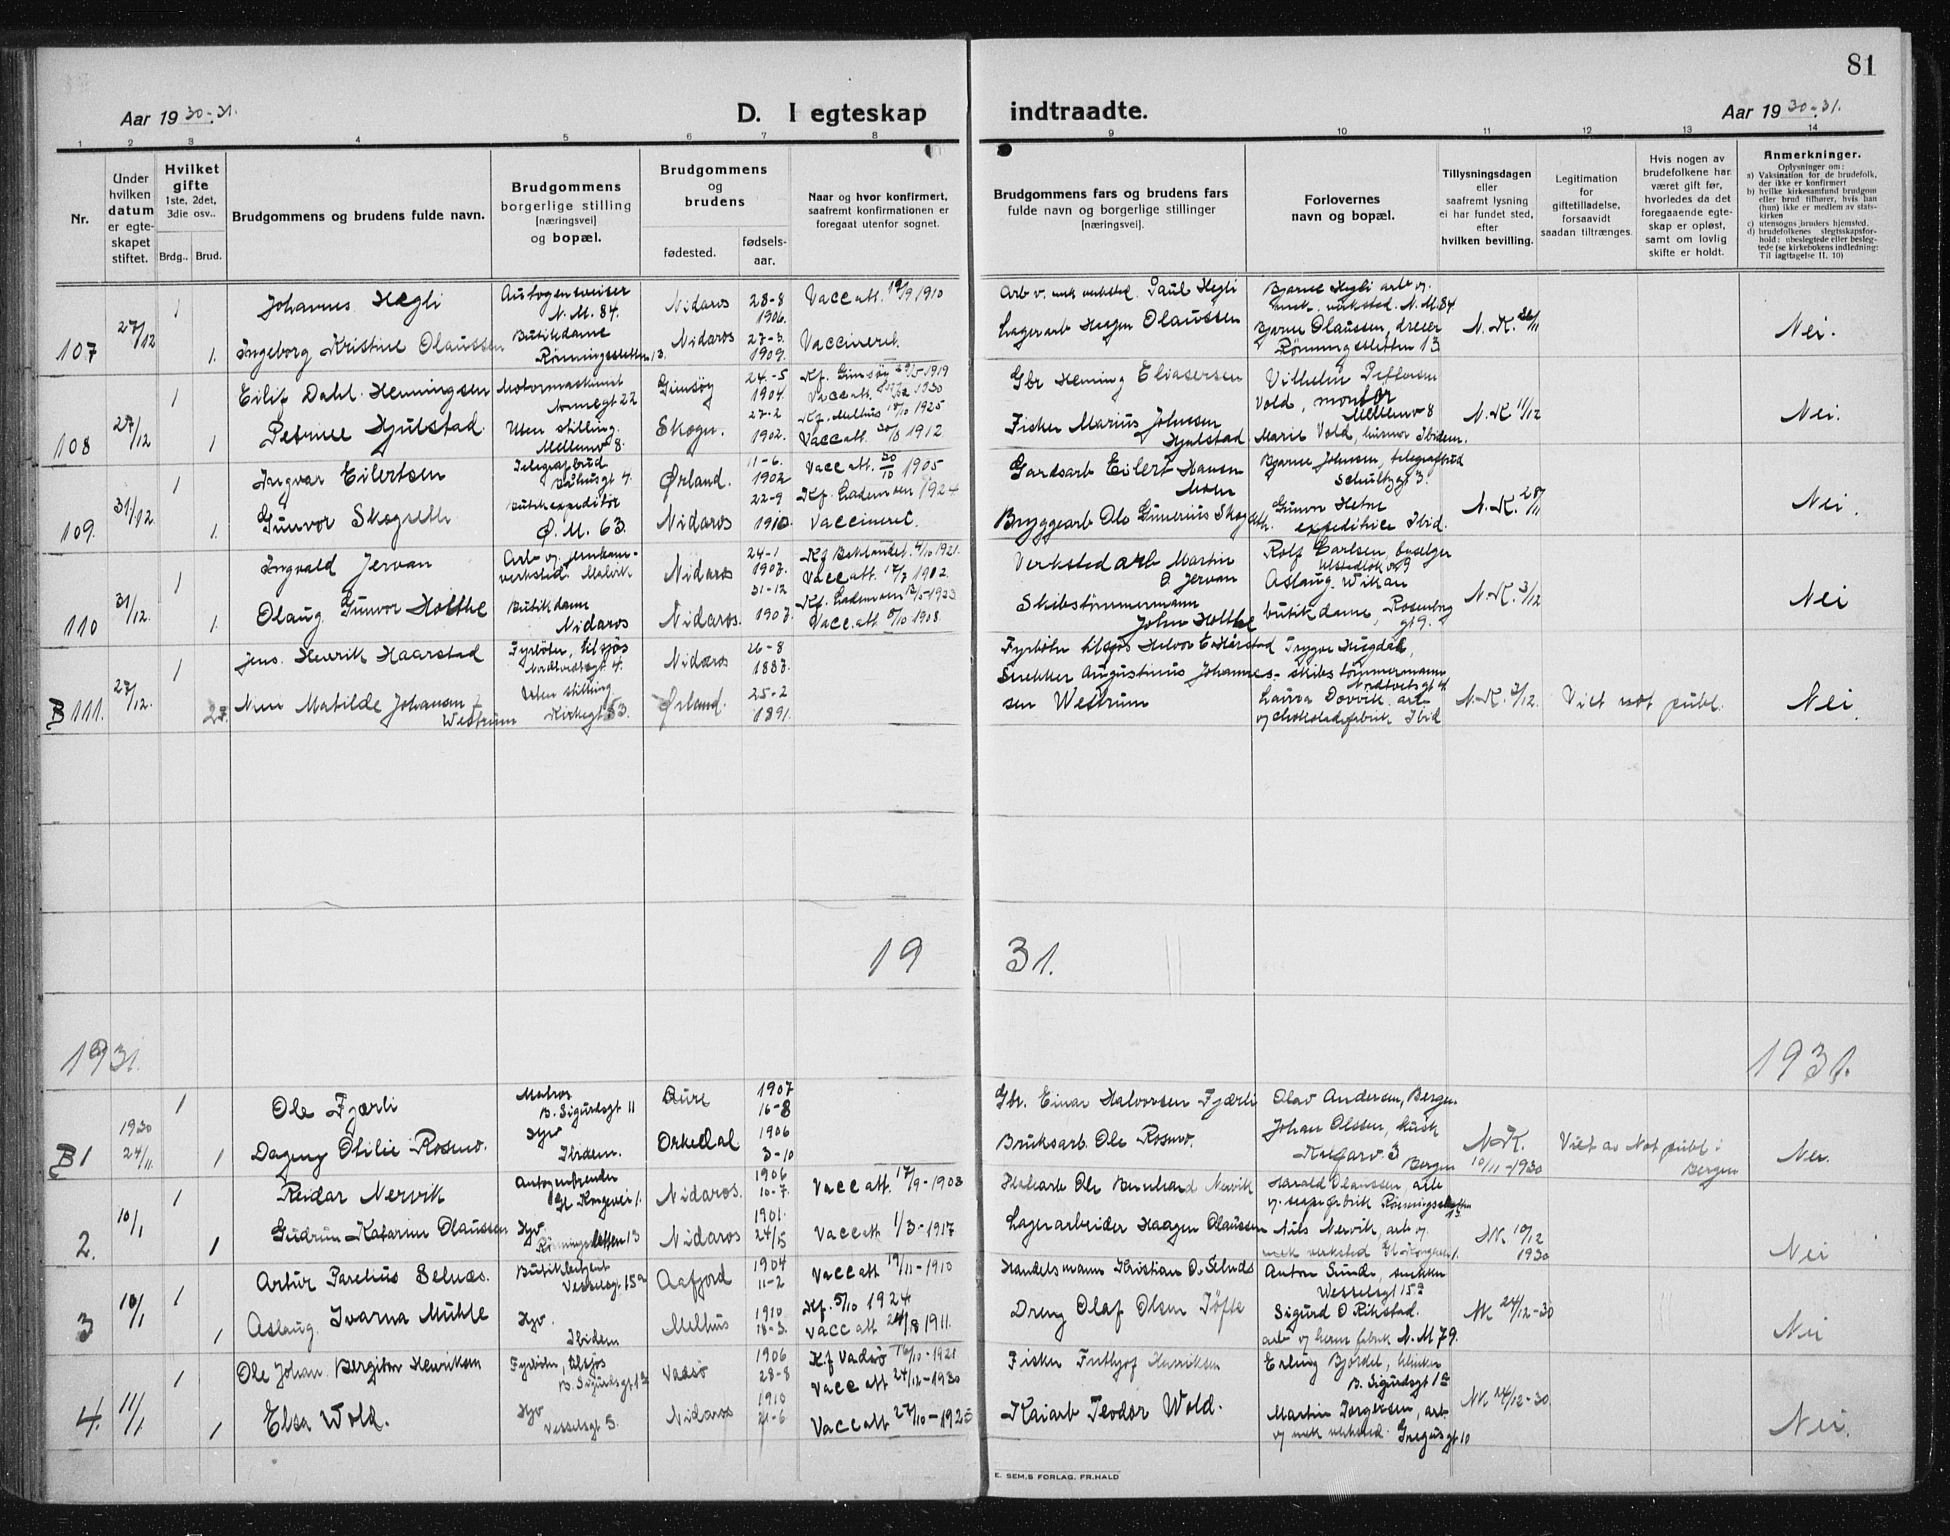 81
Aar 1930-31.
D. I egteskap indtraadte.
Aar 1930-31.
1 2 3 4 5 6 7 8 9 10 11 12 13 14
Nr.
Under hvilken datum er egteskapet stiftet.
Hvilket gifte 1ste, 2det, 3die osv..
Brdg.. Brud.
Brudgommens og brudens fulde navn.
Brudgommens borgerlige stilling [næringsvei] og bopæl.
Brudgommens og brudens
fødested.
fødsels-aar.
Naar og hvor konfirmert, saafremt konfirmationen er foregaat utenfor sognet.
Brudgommens fars og brudens fars fulde navn og borgerlige stillinger [næringsvei].
Forlovernes navn og bopæl.
Tillysningsdagen eller saafremt lysning ei har fundet sted, efter hvilken bevilling.
Legitimation for giftetilladelse, forsaavidt saadan tiltrænges.
Hvis nogen av brudefolkene har været gift før, hvorledes da det foregaaende egteskap er opløst, samt om lovlig skifte er holdt.
Anmerkninger.
Oplysninger om:
a) Vaksination for de brudefolk, der ikke er konfirmert
b) hvilke kirkesamfund brudgom eller brud tilhører, hvis han (hun) ikke er medlem av statskirken
c) utensogns bruders hjemsted.
d) brudefolkenes slegtsskapsforhold: ubeslegtede eller beslegtede (se kirkebokens indledning: Til iagttagelse 11. 10)
107 27/12 1 Johannes Hegli N. M. 84. Nidaros 28-8 1906. Vacc att. 19/9 1910 Arb v. mek verksted. Paul Hegli Bjarne Hegli arb v. mek. verksted. N. M. 84
1. Ingeborg Kristine Olaussen Butikdame Rønningsletten 13. Nidaros 27-3. 1909. Vaccineret. Lagerarb Haagen Olaussen Bjarne Olaussen, dreier Rønningsletten 13 N. K. 26/11 Nei.
108 27/12 1 Eilif Dahl Henningsen Motormaskinist 22 Gimsøy 24-5 1904. Kf. Gimsøy 1919 Vacc att. 1930 Gbr Hening Eliasersen Vilhelm Pettersen Vold, montør Mellemv 8
1 Petrine Hjulstad Uten stilling. Mellemv 8. Skogn. 27-2 1902. Kf. Melhus 1925 Vacc att. 1912. Fisker Marius Johnsen Hjulstad Marie Vold, husmor Ibidem. N. K 11/12 Nei.
109. 31/12. 1 Ingvar Eilertsen Telegrafbud 4. Ørland. 11-6. 1902 Vacc att. 30/10 1905 Kf. Lademoen 1924 Gardsarb Eilert Hansen Moen Bjarne Johnsen, telegrafbud Schultzgt 3.
1. Gunvor Skogseth Butikexpeditør Ø. M. 63. Nidaros 22-9 1910. Vaccineret. Bryggearb Ole Gunerius Skogseth. Gunvor expeditrice Ibid. N. K. 28/11 Nei.
110 31/12. 1 Ingvald Jervan verksted. Malvik Nidaros 24-1 1907. Kf Baklandet. 4/10 1921. Vacc att. 17/7 1902. Verkstedarb Martin O. Jervan Rolf Carlsen,
1. Olaug Gunvor Holthe Butikdame Nidaros Nidaros. 31-12 1907. Kf. Lademoen Vacc. att. 8/10 1908. Skibstømmermann Johan Holthe Aslaug Wikan butikdame, Rosenborg gt 9. N. K. 3/12 Nei
B 111. 27/12. 1 Jens Henrik Haarstad Fyrbøter, tilsjøs 4. Nidaros 26-8 1883. Fyrbøter tilsjøs Halvor E Hårstad Trygve Hugdal, skibstømmermann
2. Matilde Johansen f Westrum Uten stilling Kirkegt 53. Ørland. 25-2 1891. Snekker Augustinus Johannessen Westrum Laura chokoladefabrik Ibid N. K. 3/12. Vilt not publ. Nei.
19 31.
1931. 1931.
B 1 1930 24/11. 1 Ole Fjærli Matros B. Sigurdsgt 11 Aure 1907 16-8 Gbr. Einar Halvorsen Fjærli Olav Andersen, Bergen
1 Dagny Otilie Rosmo. Hjv Ibidem. Orkedal 1906 3-10 Bruksarb. Ole Rosmo. Johan Olssen, Bergen N. K. 10/11-1930 Vilt av Not publ i Bergen Nei.
2. 10/1 1 Reidar Nervik Gl. Kongevei 1. Nidaros. 1906 10-7. Vacc att. 17/9-1908 Ole Bernhard Nervik Harald Olaussen, arb v. sæpefabrik Rønningsletten 13.
1 Gudrun Katarine Olaussen Hjv. Rønningsletten 13 Nidaros 1901. 24/15 Vacc att 1/3-1917 Lagerarbeider Haagen Olaussen Nils Nervik, arb v mek verksted Gl. Kongevei 1. NK 10/12 1930 Nei
3 10/1 1 Artur Parelius Selnæs. Butikbetjent Wesselsgt 15a Aafjord 1904 11-2 Vacc att 19/11-1910 Handelsmann Kristian O. Selnæs Anton Sunde, snekker Wesselsgt 15a
1 Aslaug Ivarna Mühle Hjv. Ibidem Melhus 1910 18-3. Kf. 5/10 1924 Vacc att 24/8 1911. Dreng Olaf Olsen Tøfte Sigurd O Rikstad. arb v herm fabrik N. M 79. NK 24/12-30 Nei
4. 11/1 1 Ole Johan Bergiton Henriksen Fyrbøter, tilsjøs B. Sigurdsgt 13 Vadsø 1906 28-8 Kf Vadsø 16/10-1921 Vacc att 24/12-1930 Fisker Fritjof Henriksen Erling Bjørdal, blikkensl. B. Sigurdsgt 1a
1 Elsa Wold. Hjv Vesselsgt 5. Nidaros 1910 21-6. Vacc att 27/10-1925 Kaiarb Teodor Wold. Martin Jørgensen, arb v mek verksted. Gregusgt 10 NK 24/12-30. Nei.
E. SEM.S FORLAG, FR.HALD